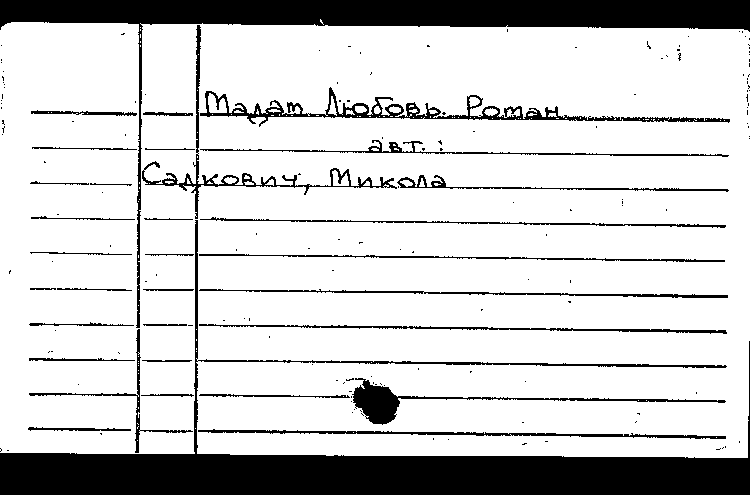 Мадам Любовь. Роман
авт. :
Садкович, Микола